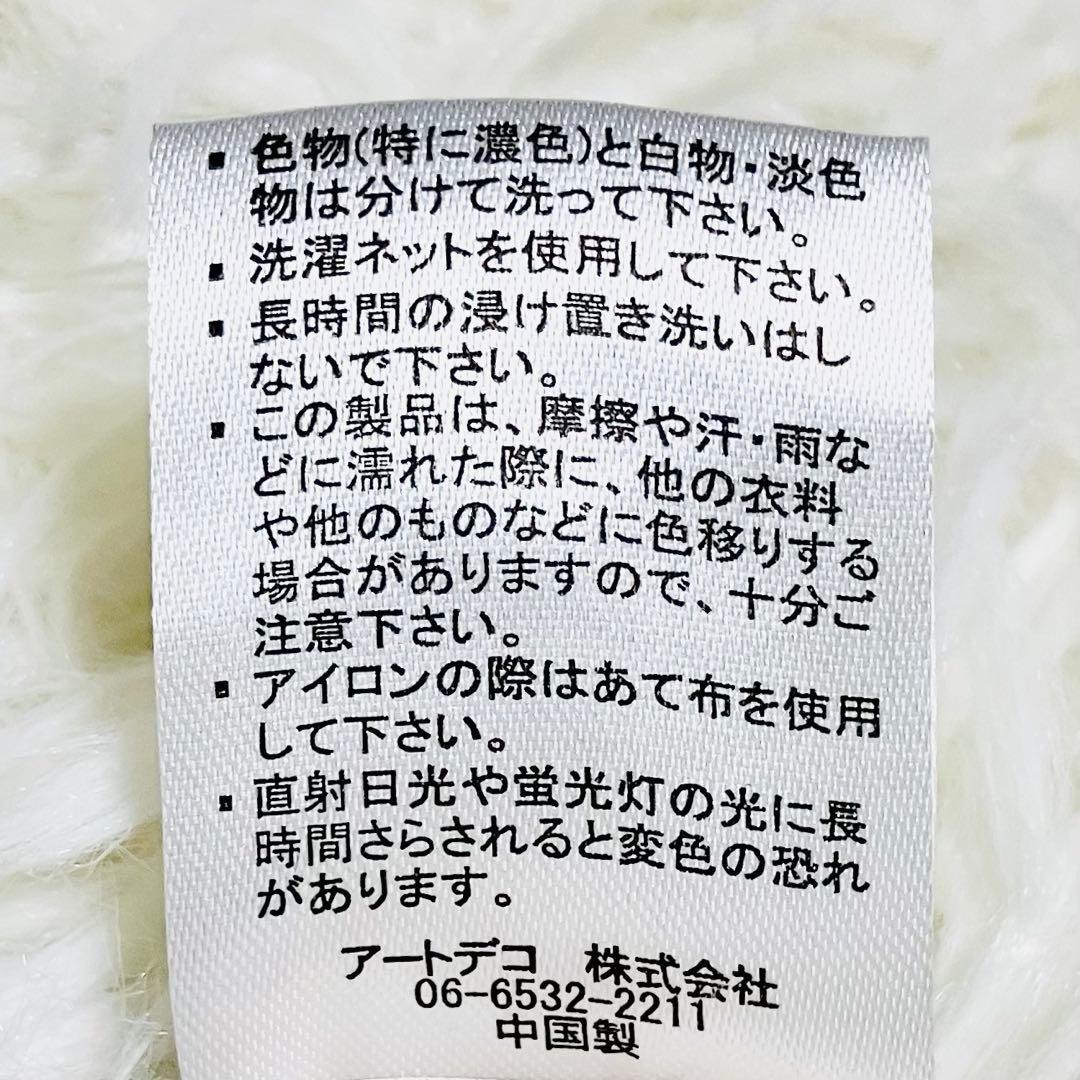 ▪ 色物(特に濃色)と白物・淡色
物は分けて洗って下さい。
▪ 洗濯ネットを使用して下さい。
▪ 長時間の浸け置き洗いはし
ないで下さい。
▪ この製品は、摩擦や汗・雨な
どに濡れた際に、他の衣料
や他のものなどに色移りする
場合がありますので、十分ご
注意下さい。
▪ アイロンの際はあて布を使用
して下さい。
▪ 直射日光や蛍光灯の光に長
時間さらされると変色の恐れ
があります。
アートデコ　株式会社
06-6532-2211
中国製